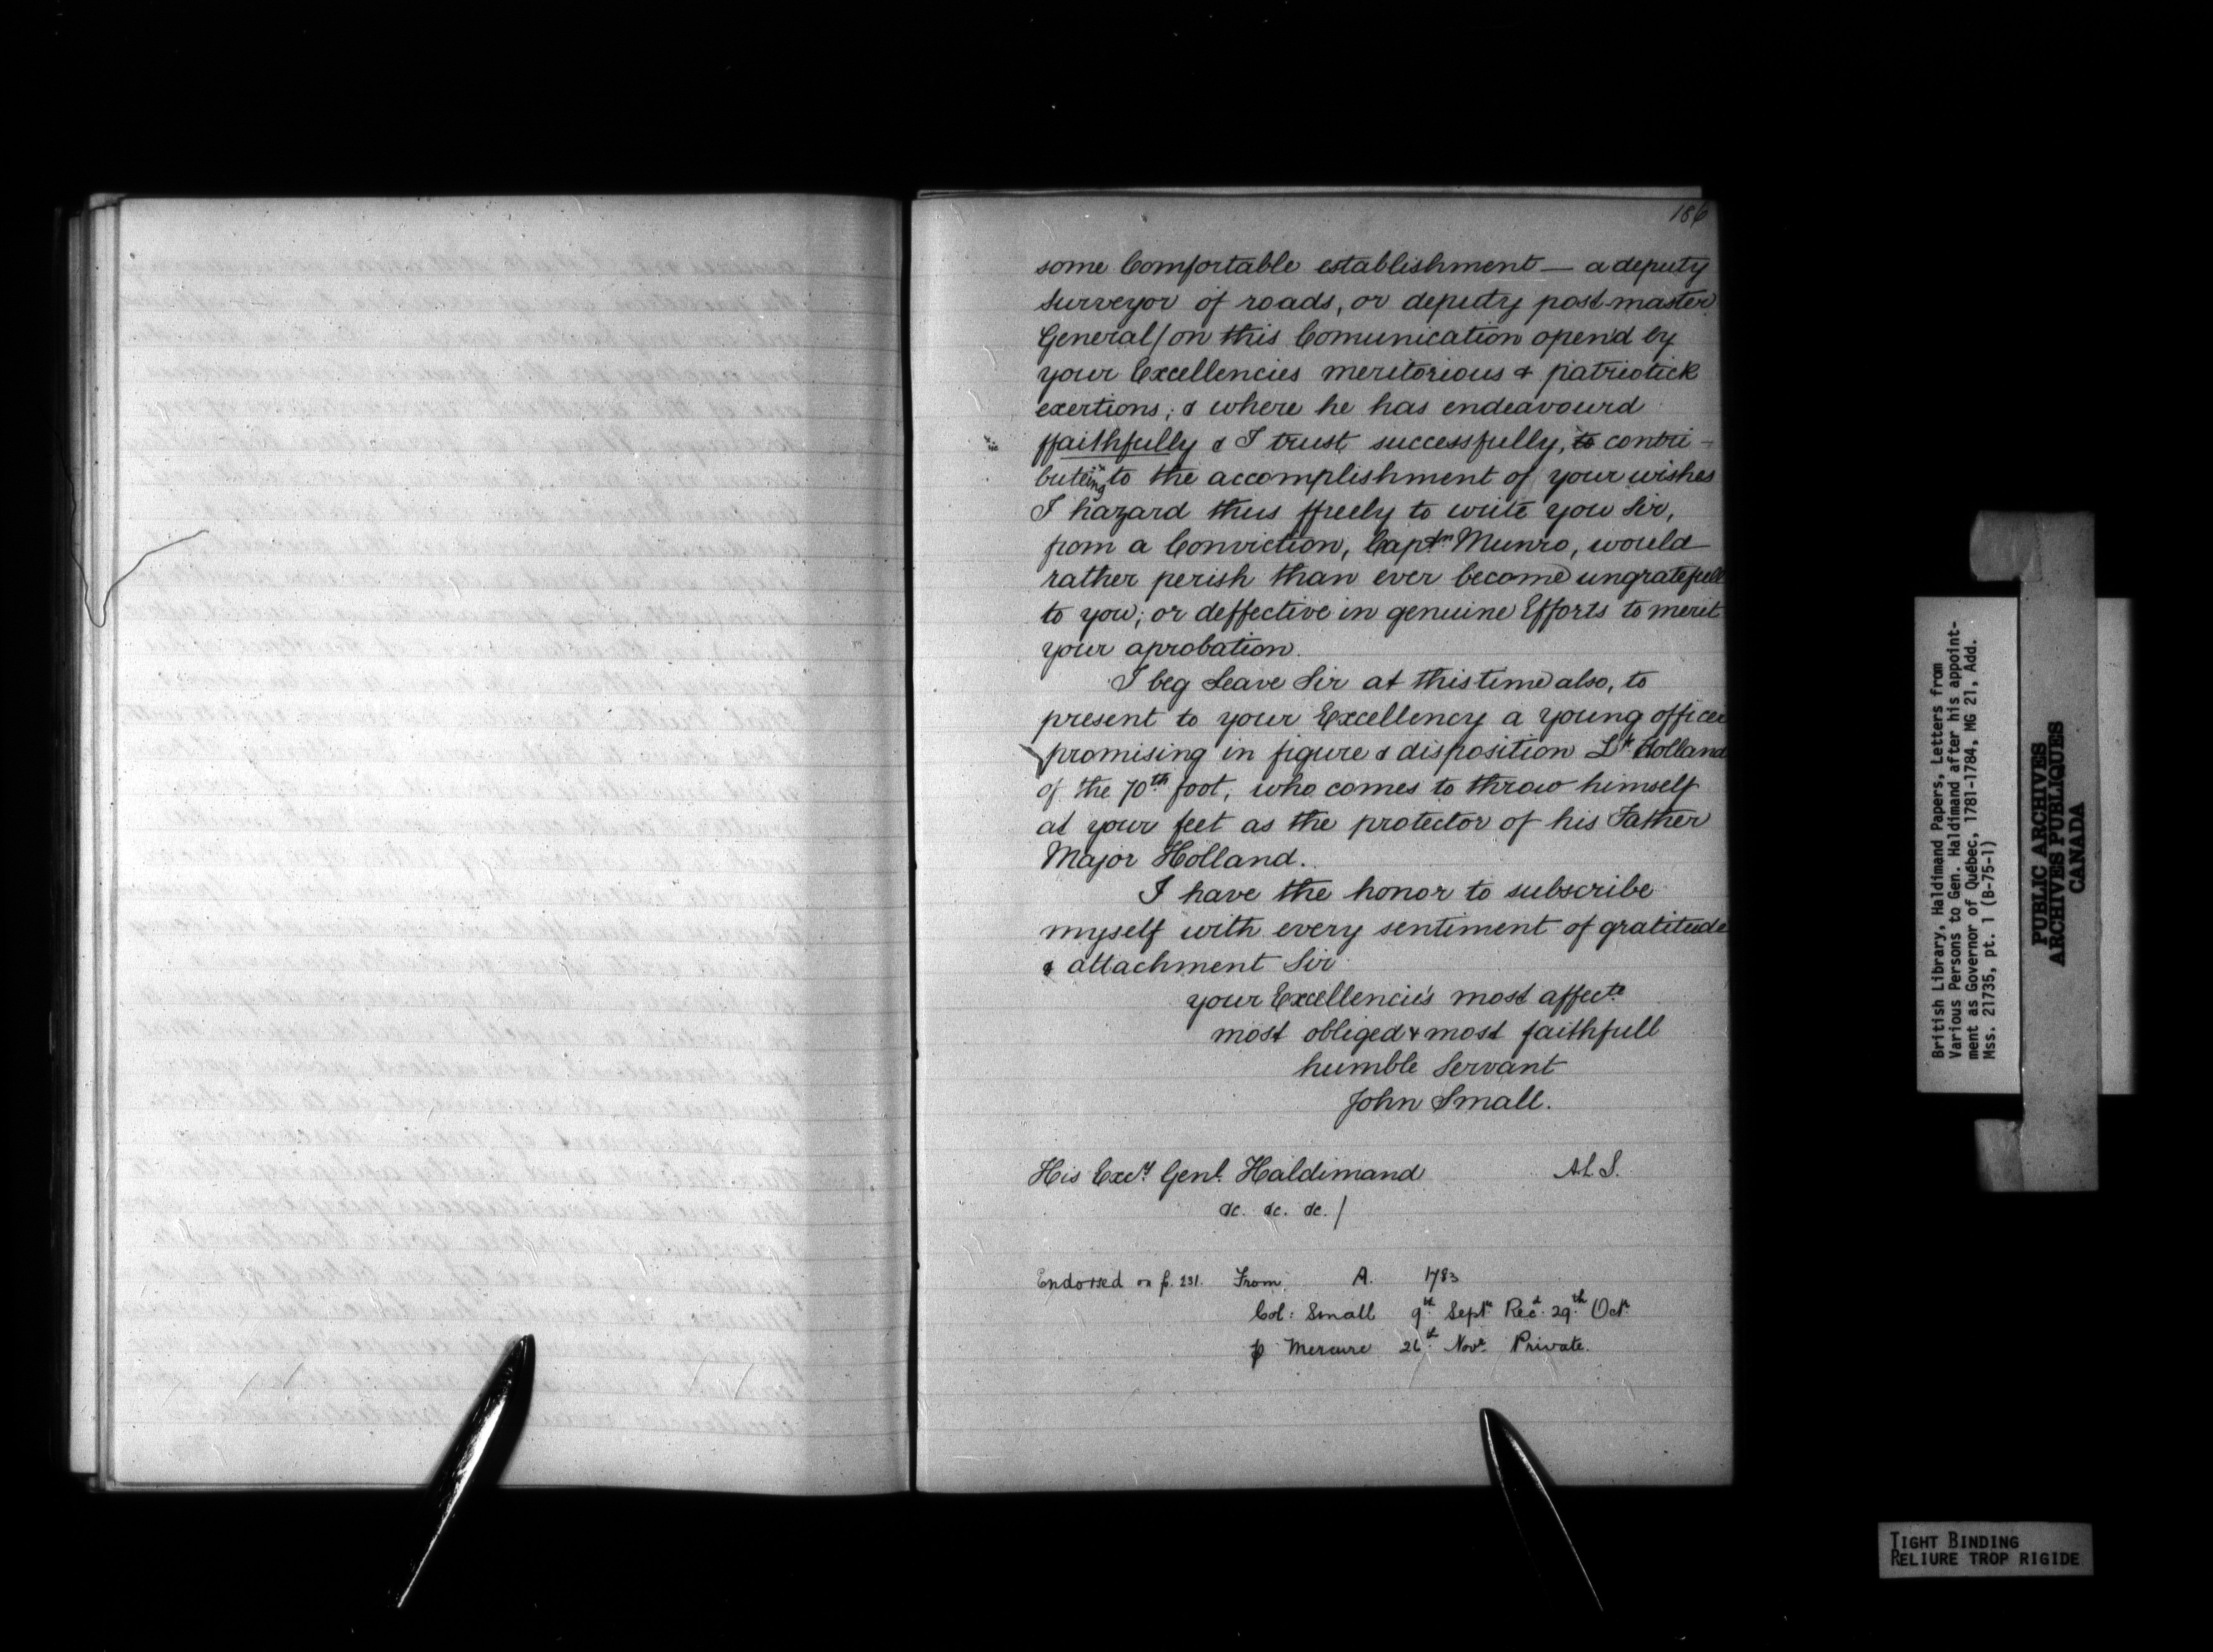 186
some Comfortable establishment — a deputy
surveyor of roads, or deputy post-master
General/on this Comunication open'd by
your Excellencies meritorious & patriotick
exertions; & where he has endeavourd
ffaithfully & I trust, successfully, to contri-
buteing to the accomplishment of your wishes
I hazard thus ffreely to write you Sir,
from a Conviction, Captn Munro, would
rather perish than ever become ungratefull
to you; or deffective in genuine Efforts to merit
your aprobation.
I beg Leave Sir at this time also, to
present to your Excellency a young officer
promising in figure & disposition Lt. Holland
of the 70th foot, who comes to throw himself
at your feet as the protector of his Father
Major Holland.
I have the honor to subscribe
myself with every sentiment of gratitude
& attachment Sir
your Excellencie's most affecte
most obliged & most faithfull
humble Servant
John Small.
His Excy. Genl. Haldimand A.L.S.
&c. &c. &c. /
Endorsed on p. 231. From A. 1783
Col: Small 9th Septr Recd. 29th Octr.
p Mercure 26th Novr. Private.
British Library, Haldimand Papers, Letters from
Various Persons to Gen. Haldimand after his appoint-
ment as Governor of Québec, 1781-1784, MG 21, Add.
Mss. 21735, pt. 1 (B-75-1)
PUBLIC ARCHIVES
ARCHIVES PUBLIQUES
CANADA
TIGHT BINDING
RELIURE TROP RIGIDE